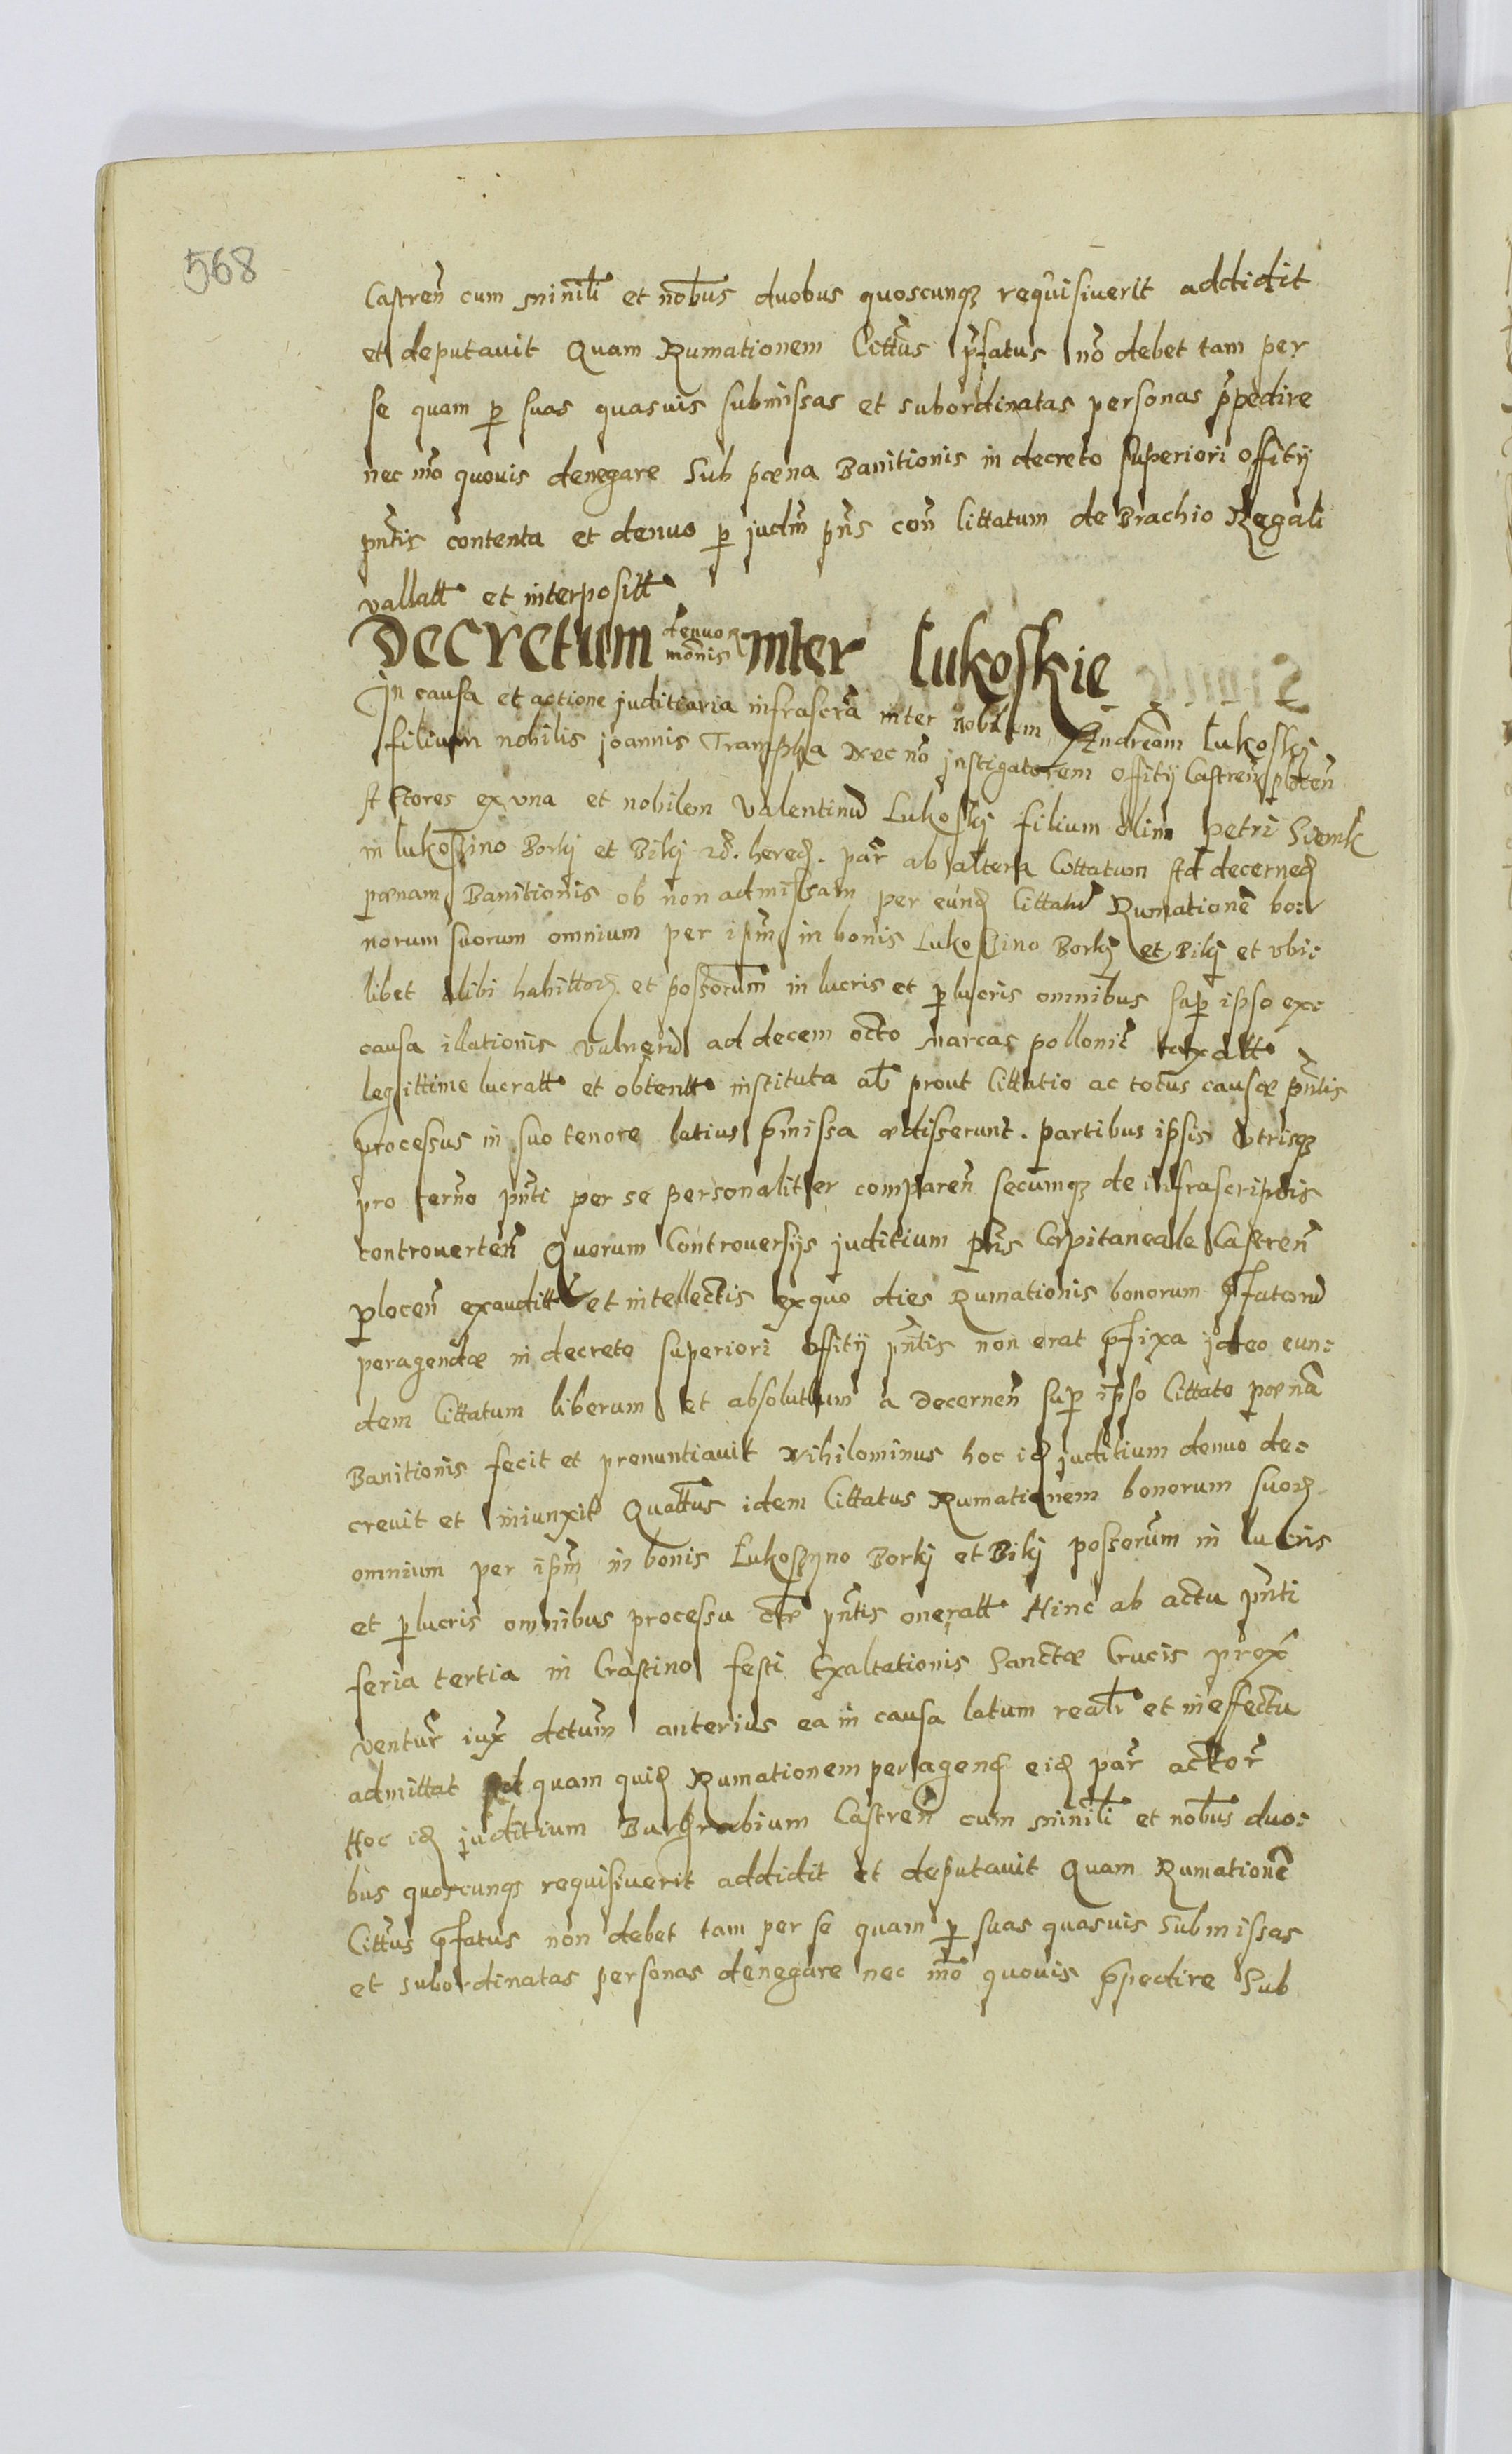 568
Castren̄ cum minirĩli et nob̃us duobus quoscunqꝫ requisiuerit addidit
et deputauit Quam Rumationem Citt̃us p̃fatus nõ debet tam per
se quam ꝑ suas quasuis submissas et subordinatas personas p̃pedire
nec m̃o quouis denegare Sub pœna Banitionis in decreto superiori offitÿ
pn̄tis contenta et denuo ꝑ judm̃ pn̄s con̄ Cittatum de Brachio Regali
vallatt et interpositt
Decretum denuo inter Lukoskie
In causa et actione juditiaria infrascrã inter nobilem Andream Lukoskj
filium nobilis joannis Trampka Nec nõ jnstigatorem offitÿ Castren̄ ploten̄
Actores ex vna et nobilem Valentinũ Lukoskj filium olim petri Siemk
in Lukossino Borkj et Bilkj hered. par̃ ab altera Cittatum Ad decernend
pœnam Banitionis ob non admissam per eund Cittatũ Rumationẽ bo:
norum suorum omnium per ipm̃ in bonis Lukossino Borkj et Bilkj et vbi:
libet alibi habittoꝝ et possorum̃ in lucris et ꝑlucris omnibus sup̃ ipso ex:
causa illationis vulnerũ ad decem octo marcas pollonit̃ taxatt
legittime lucratt et obtentt instituta alr̃ prout Cittatio ac totus causæ pn̄tis
processus in suo tenore latius p̃missa ædisserunt. partibus ipsis vtrisqꝫ
pro term̃o pn̄ti per se personaliter comparen̄ secumqꝫ de infrascriptis
controuerten̄ Quorum Controuersÿs juditium pn̄s Capitaneale Castren̄
plocen̄ exauditt et intellectis ex quo dies Rumationis bonorum p̃fatorũ
peragendæ in decreto superiori offitÿ pn̄tis non erat p̃fixa jdeo eun:
dem Cittatum liberum et absolutum a decernen̄ sup̃ ipso Cittato pœnã
Banitionis fecit et pronuntiauit Nihilominus hoc id juditium denuo de:
creuit et iniunxit Quatt̃us idem Cittatus Rumationem bonorum suoꝝ
omnium per ipm̃ in bonis Lukossyno Borkj et Bilkj possorum̃ in lucris
et ꝑlucris omnibus processu ctr̃ pn̄tis oneratt Hinc ab actu pn̄ti
feria tertia in Crastino festi Exaltationis Sanctæ Crucis prox̃
ventur̃ iux̃ dctum̃ anterius ea in causa latum realr̃ et in effectu
admittat Ad quam quid Rumationem peragend eid par̃ actor̃
Hoc id juditium Burgrabium Castren̄ cum minirĩli et nob̃us duo:
bus quoscunqꝫ requisiuerit addidit et deputauit Quam Rumationẽ
Citt̃us p̃fatus non debet tam per se quam ꝑ suas quasuis submissas
et subordinatas personas denegare nec m̃o quouis p̃pedire Sub